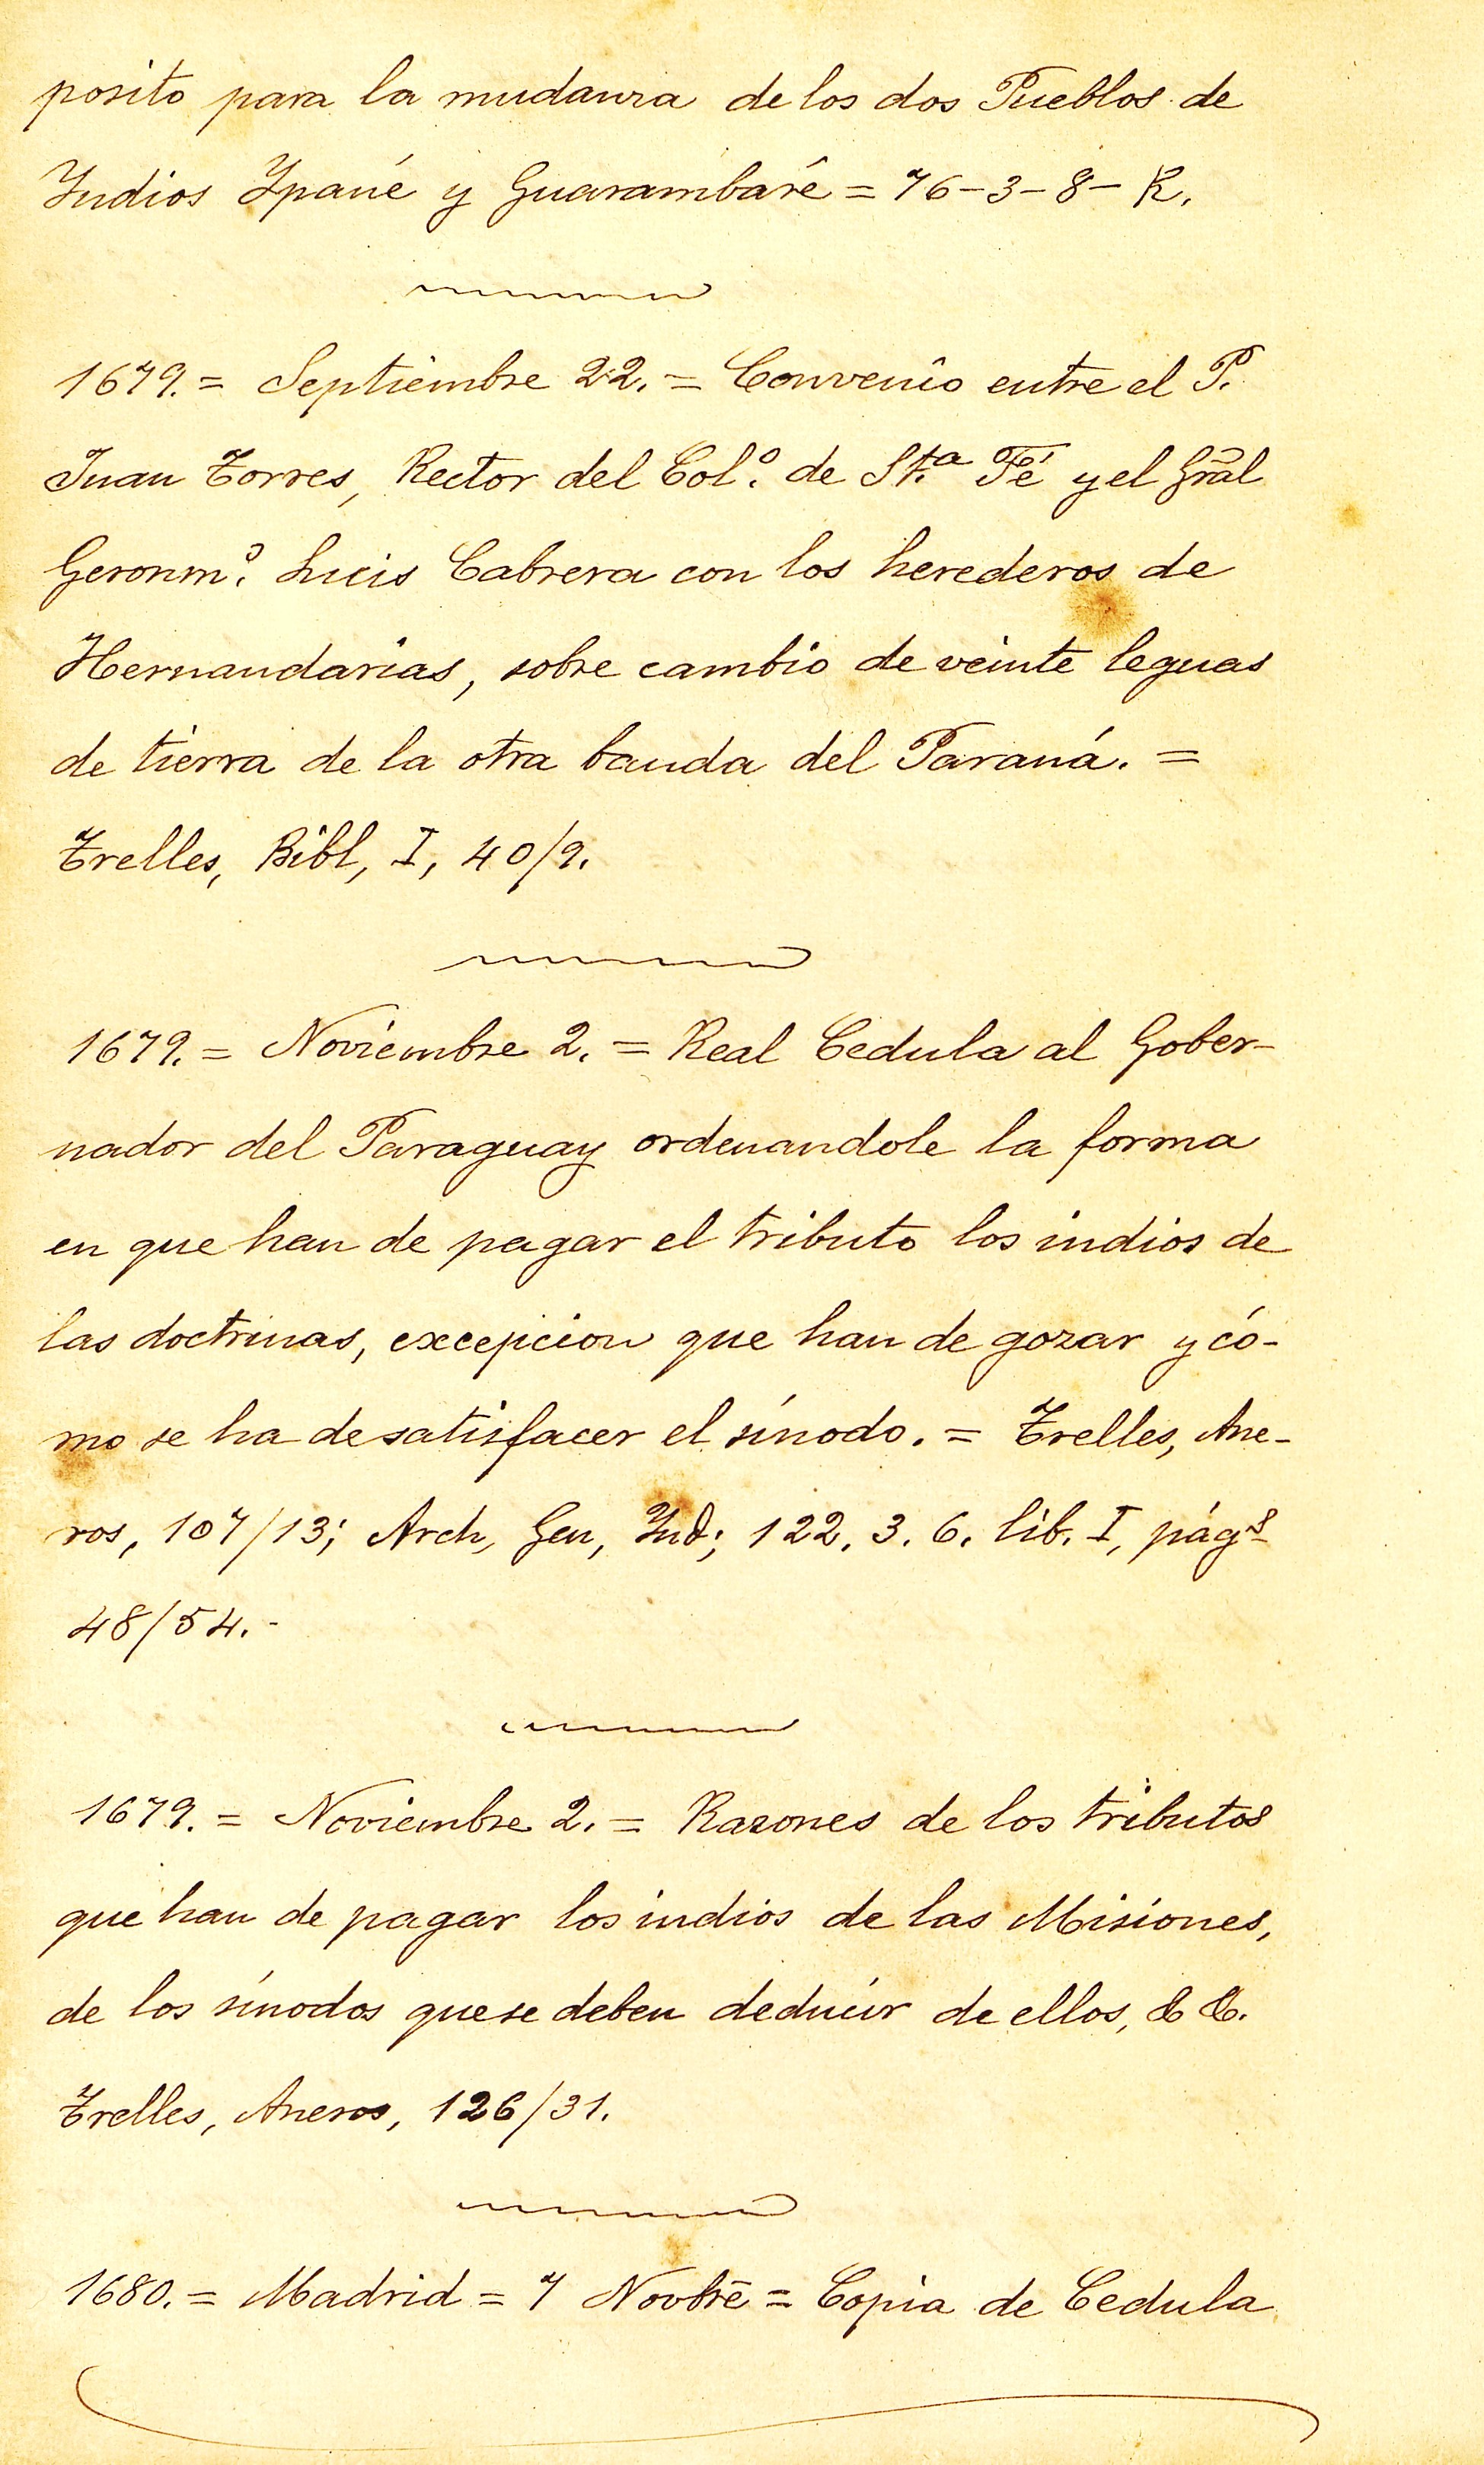 posito para la mudanza de los dos Pueblos de
Indios Ypané y Guarambaré = 76-3-8- R.
1679. = Septiembre 22. = Convenio entre el P.
Juan Torres, Rector del Col.º de St.ª Fé y el Grãl
Geronm.º Luis Cabrera con los herederos de
Hernandarias, sobre cambio de veinte leguas
de tierra de la otra banda del Paraná. =
Trelles, Bibl, I, 40/9.
1679. = Noviembre 2. = Real Cedula al Gober-
nador del Paraguay ordenandole la forma
en que han de pagar el tributo los indios de
las doctrinas, excepcion que han de gozar y có-
mo se ha de satisfacer el sínodo. = Trelles, Ane-
xos, 107/13; Arch, Gen, Ind; 122. 3. 6. lib. I, págs
48/54.-
1679. = Noviembre 2. = Razones de los tributos
que han de pagar los indios de las Misiones,
de los sínodos que se deben deducir de ellos, & &.
Trelles, Anexos, 126/31.
1680. = Madrid = 7 Novbrē = Copia de Cedula